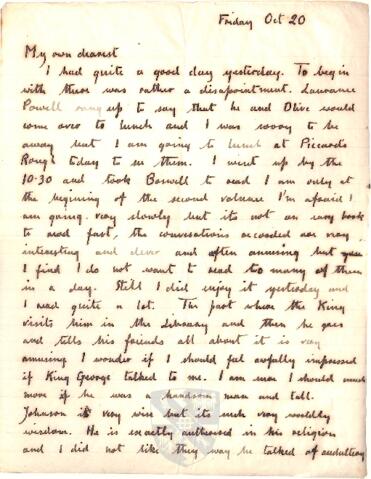 Friday Oct 20
My own dearest
I had quite a good day yesterday. To begin
with there was rather a disapointment. Laurance
Powell rang up to say that he and Olive would
come over to lunch and I was sorry to be
away but I am going to lunch at Piccards
Rough today to see them. I went up by the
10.30 and took Boswell to read I am only at
the beginning of the second volume I'm afraid I
am going very slowly but its not an easy book
to read fast, the conversations recorded are very
interesting and clever and often amusing but
I find I do not want to read to many of them
in a day. Still I did enjoy it yesterday and
I read quite a lot. The part where the King
visits him in the Library and then he goes
and tells his friends all about it is very
amusing I wonder if I should feel awfully impressed
if King George talked to me. I am sure I should much
more if he was a handsom man and tall.
Johnson is very wise but its such very worldly
wisdom. He is exactly in his religion
and I did not like they way he talked of adultery